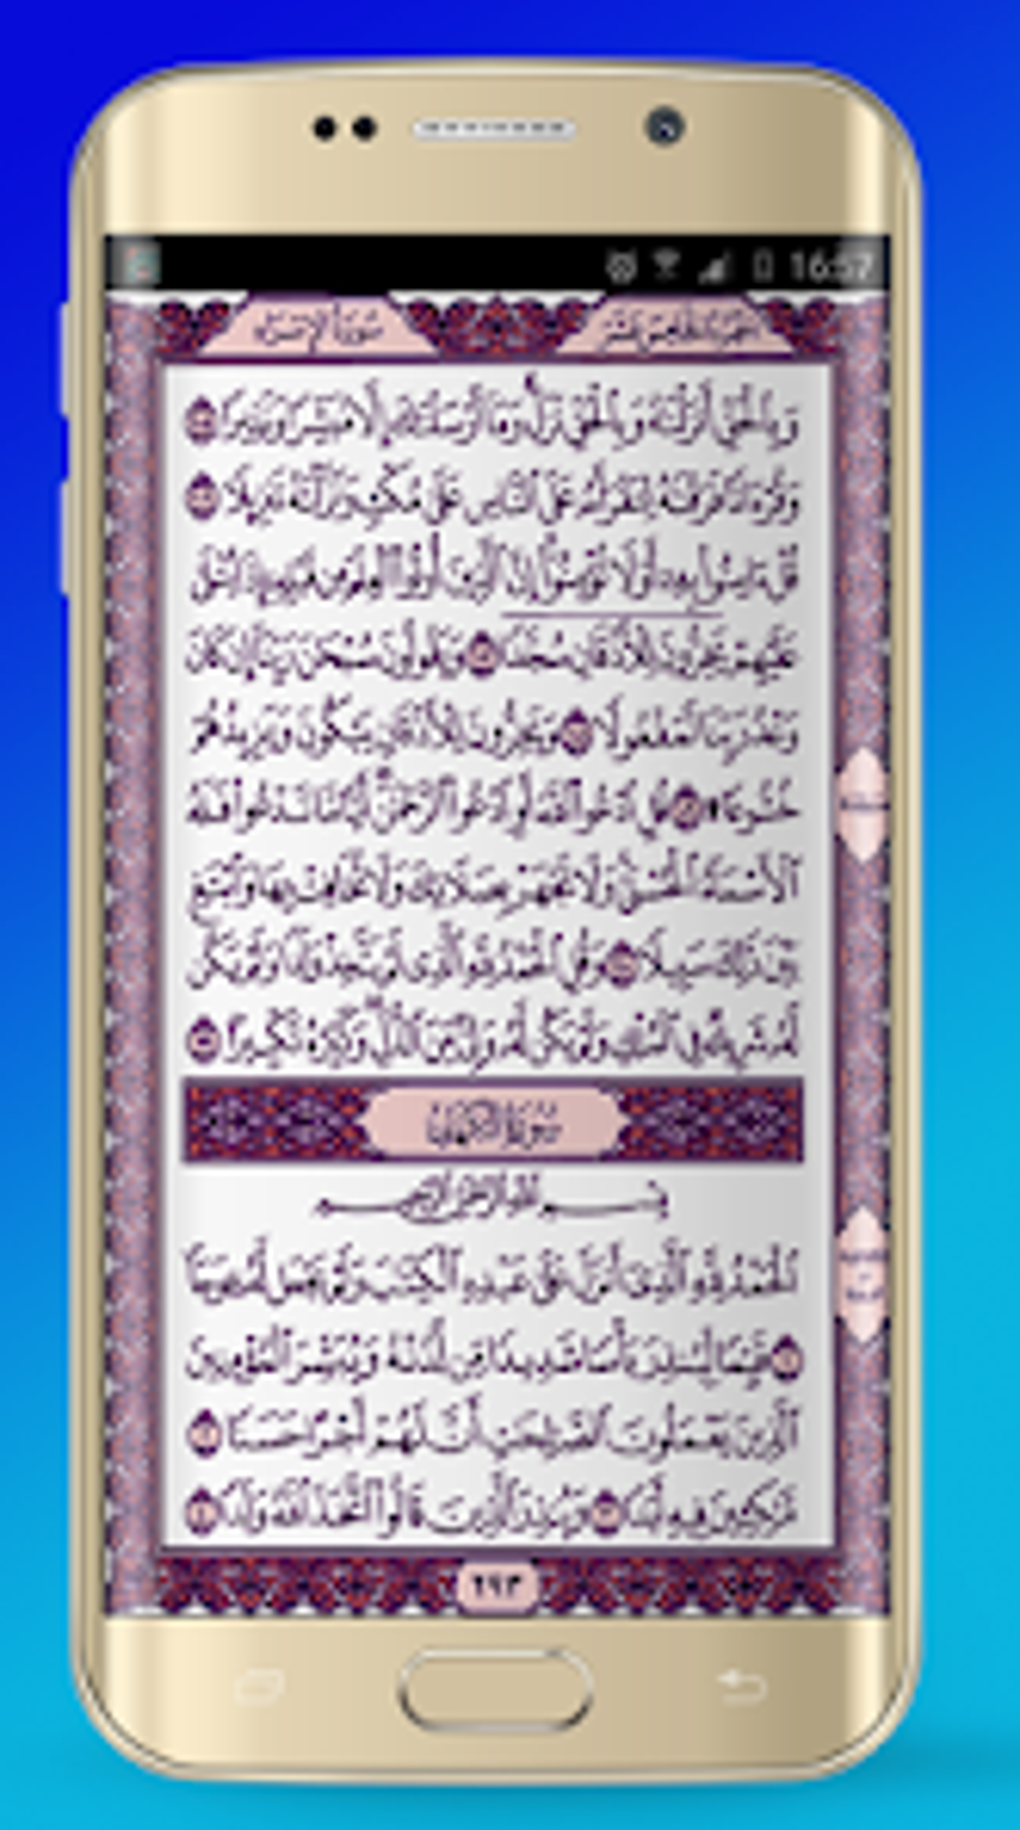 16:57
سورة الإسراء
الجزء الخامس عشر
وَبِالْحَقِّ أَنزَلْنَاهُ وَبِالْحَقِّ نَزَلَ وَمَا أَرْسَلْنَاكَ إِلَّا مُبَشِّرًا وَنَذِيرًا
وَقُرْءَانًا فَرَقْنَاهُ لِتَقْرَأَهُ عَلَى النَّاسِ عَلَى مُكْثٍ وَنَزَّلْنَاهُ تَنزِيلًا
قُلْ ءَامِنُوا بِهِ أَوْ لَا تُؤْمِنُوا إِنَّ الَّذِينَ أُوتُوا الْعِلْمَ مِن قَبْلِهِ إِذَا يُتْلَى
عَلَيْهِمْ يَخِرُّونَ لِلْأَذْقَانِ سُجَّدًا وَيَقُولُونَ سُبْحَانَ رَبِّنَا إِن كَانَ
وَعْدُ رَبِّنَا لَمَفْعُولًا وَيَخِرُّونَ لِلْأَذْقَانِ يَبْكُونَ وَيَزِيدُهُمْ
خُشُوعًا قُلِ ادْعُوا اللَّهَ أَوِ ادْعُوا الرَّحْمَنَ أَيًّا مَّا تَدْعُوا فَلَهُ
الْأَسْمَاءُ الْحُسْنَى وَلَا تَجْهَرْ بِصَلَاتِكَ وَلَا تُخَافِتْ بِهَا وَابْتَغِ
بَيْنَ ذَلِكَ سَبِيلًا وَقُلِ الْحَمْدُ لِلَّهِ الَّذِي لَمْ يَتَّخِذْ وَلَدًا وَلَمْ يَكُن
لَّهُ شَرِيكٌ فِي الْمُلْكِ وَلَمْ يَكُن لَّهُ وَلِيٌّ مِّنَ الذُّلِّ وَكَبِّرْهُ تَكْبِيرًا
سورة الكهف
بِسْمِ اللَّهِ الرَّحْمَنِ الرَّحِيمِ
الْحَمْدُ لِلَّهِ الَّذِي أَنزَلَ عَلَى عَبْدِهِ الْكِتَابَ وَلَمْ يَجْعَل لَّهُ عِوَجًا
قَيِّمًا لِّيُنذِرَ بَأْسًا شَدِيدًا مِّن لَّدُنْهُ وَيُبَشِّرَ الْمُؤْمِنِينَ
الَّذِينَ يَعْمَلُونَ الصَّالِحَاتِ أَنَّ لَهُمْ أَجْرًا حَسَنًا
مَّاكِثِينَ فِيهِ أَبَدًا وَيُنذِرَ الَّذِينَ قَالُوا اتَّخَذَ اللَّهُ وَلَدًا
٢٩٣